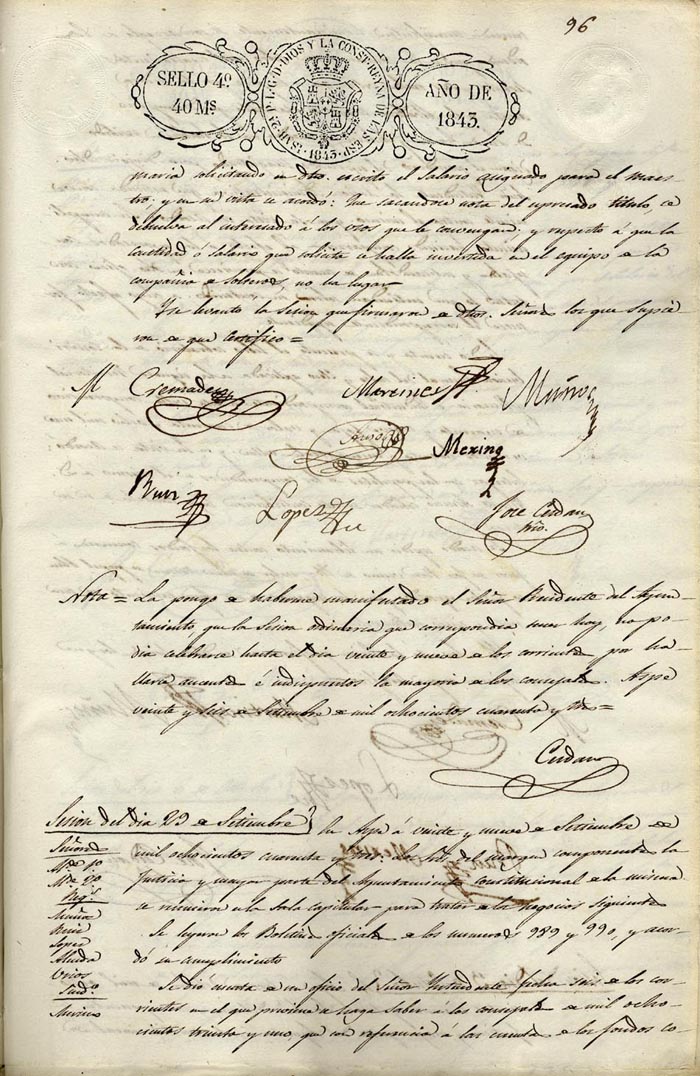 96
SELLO 4º
40 Ms
ISAB. 2ª P. L. G. D. DIOS Y LA CONST. REYNA DE LAS ESP. 1843.
AÑO DE
1843.
maria solicitando en dho. escrito el salario asignado para el maes
tro, y en su vista se acordó: Que sacandose nota del espresado titulo, se
debuelva al interesado á los usos que le convengan: y respecto á que la
cantidad ó salario que solicita se halla invertida en el equipo de la
compañia de Solteros, no ha lugar
Y se levantó la Sesion que firmaron dhos. Señores los que supie
ron de que Certifico=
Cremades Martinez Muños
Merino
Ruiz Lopez Jose Cerdan
Srio.
Nota= La pongo de haberme manifestado el Señor Presidente del Ayun-
tamiento, que la Sesion ordinaria que correspondia tener hoy, no po-
dia celebrarse hasta el dia veinte y nueve de los corrientes por ha-
llarse ausentes é indispuestos la mayoria de los concejales. Aspe
veinte y seis de Setiembre de mil ochocientos cuarenta y tres=
Cerdan
Sesion del dia 29 de Setiembre
Señores
Regs.
Muñoz
Ruiz
Lopez
Almodar
Urios
Sindº.
Merino
En Aspe á veinte y nueve de Setiembre de
mil ochocientos cuarenta y tres: los Sres. del margen componentes la
Justicia y mayor parte del Ayuntamiento constitucional de la misma
se reunieron en la Sala Capitular para tratar de los negocios siguientes
Se leyeron los Boletines oficiales de los numeros 989 y 990, y acor-
dó su cumplimiento
Se dió cuenta de un oficio del Señor Yntendente fecha seis de los co-
rrientes en el que previene se haga saber á los concejales de mil ocho-
cientos treinta y uno, que con referencia á las cuentas de los fondos co-